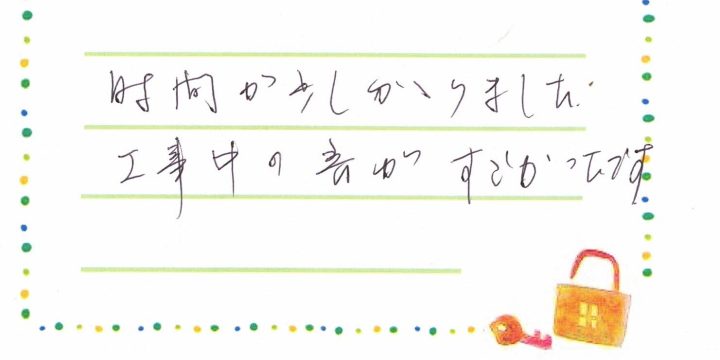 時間が少しかかりました.
工事中の音がすごかったです